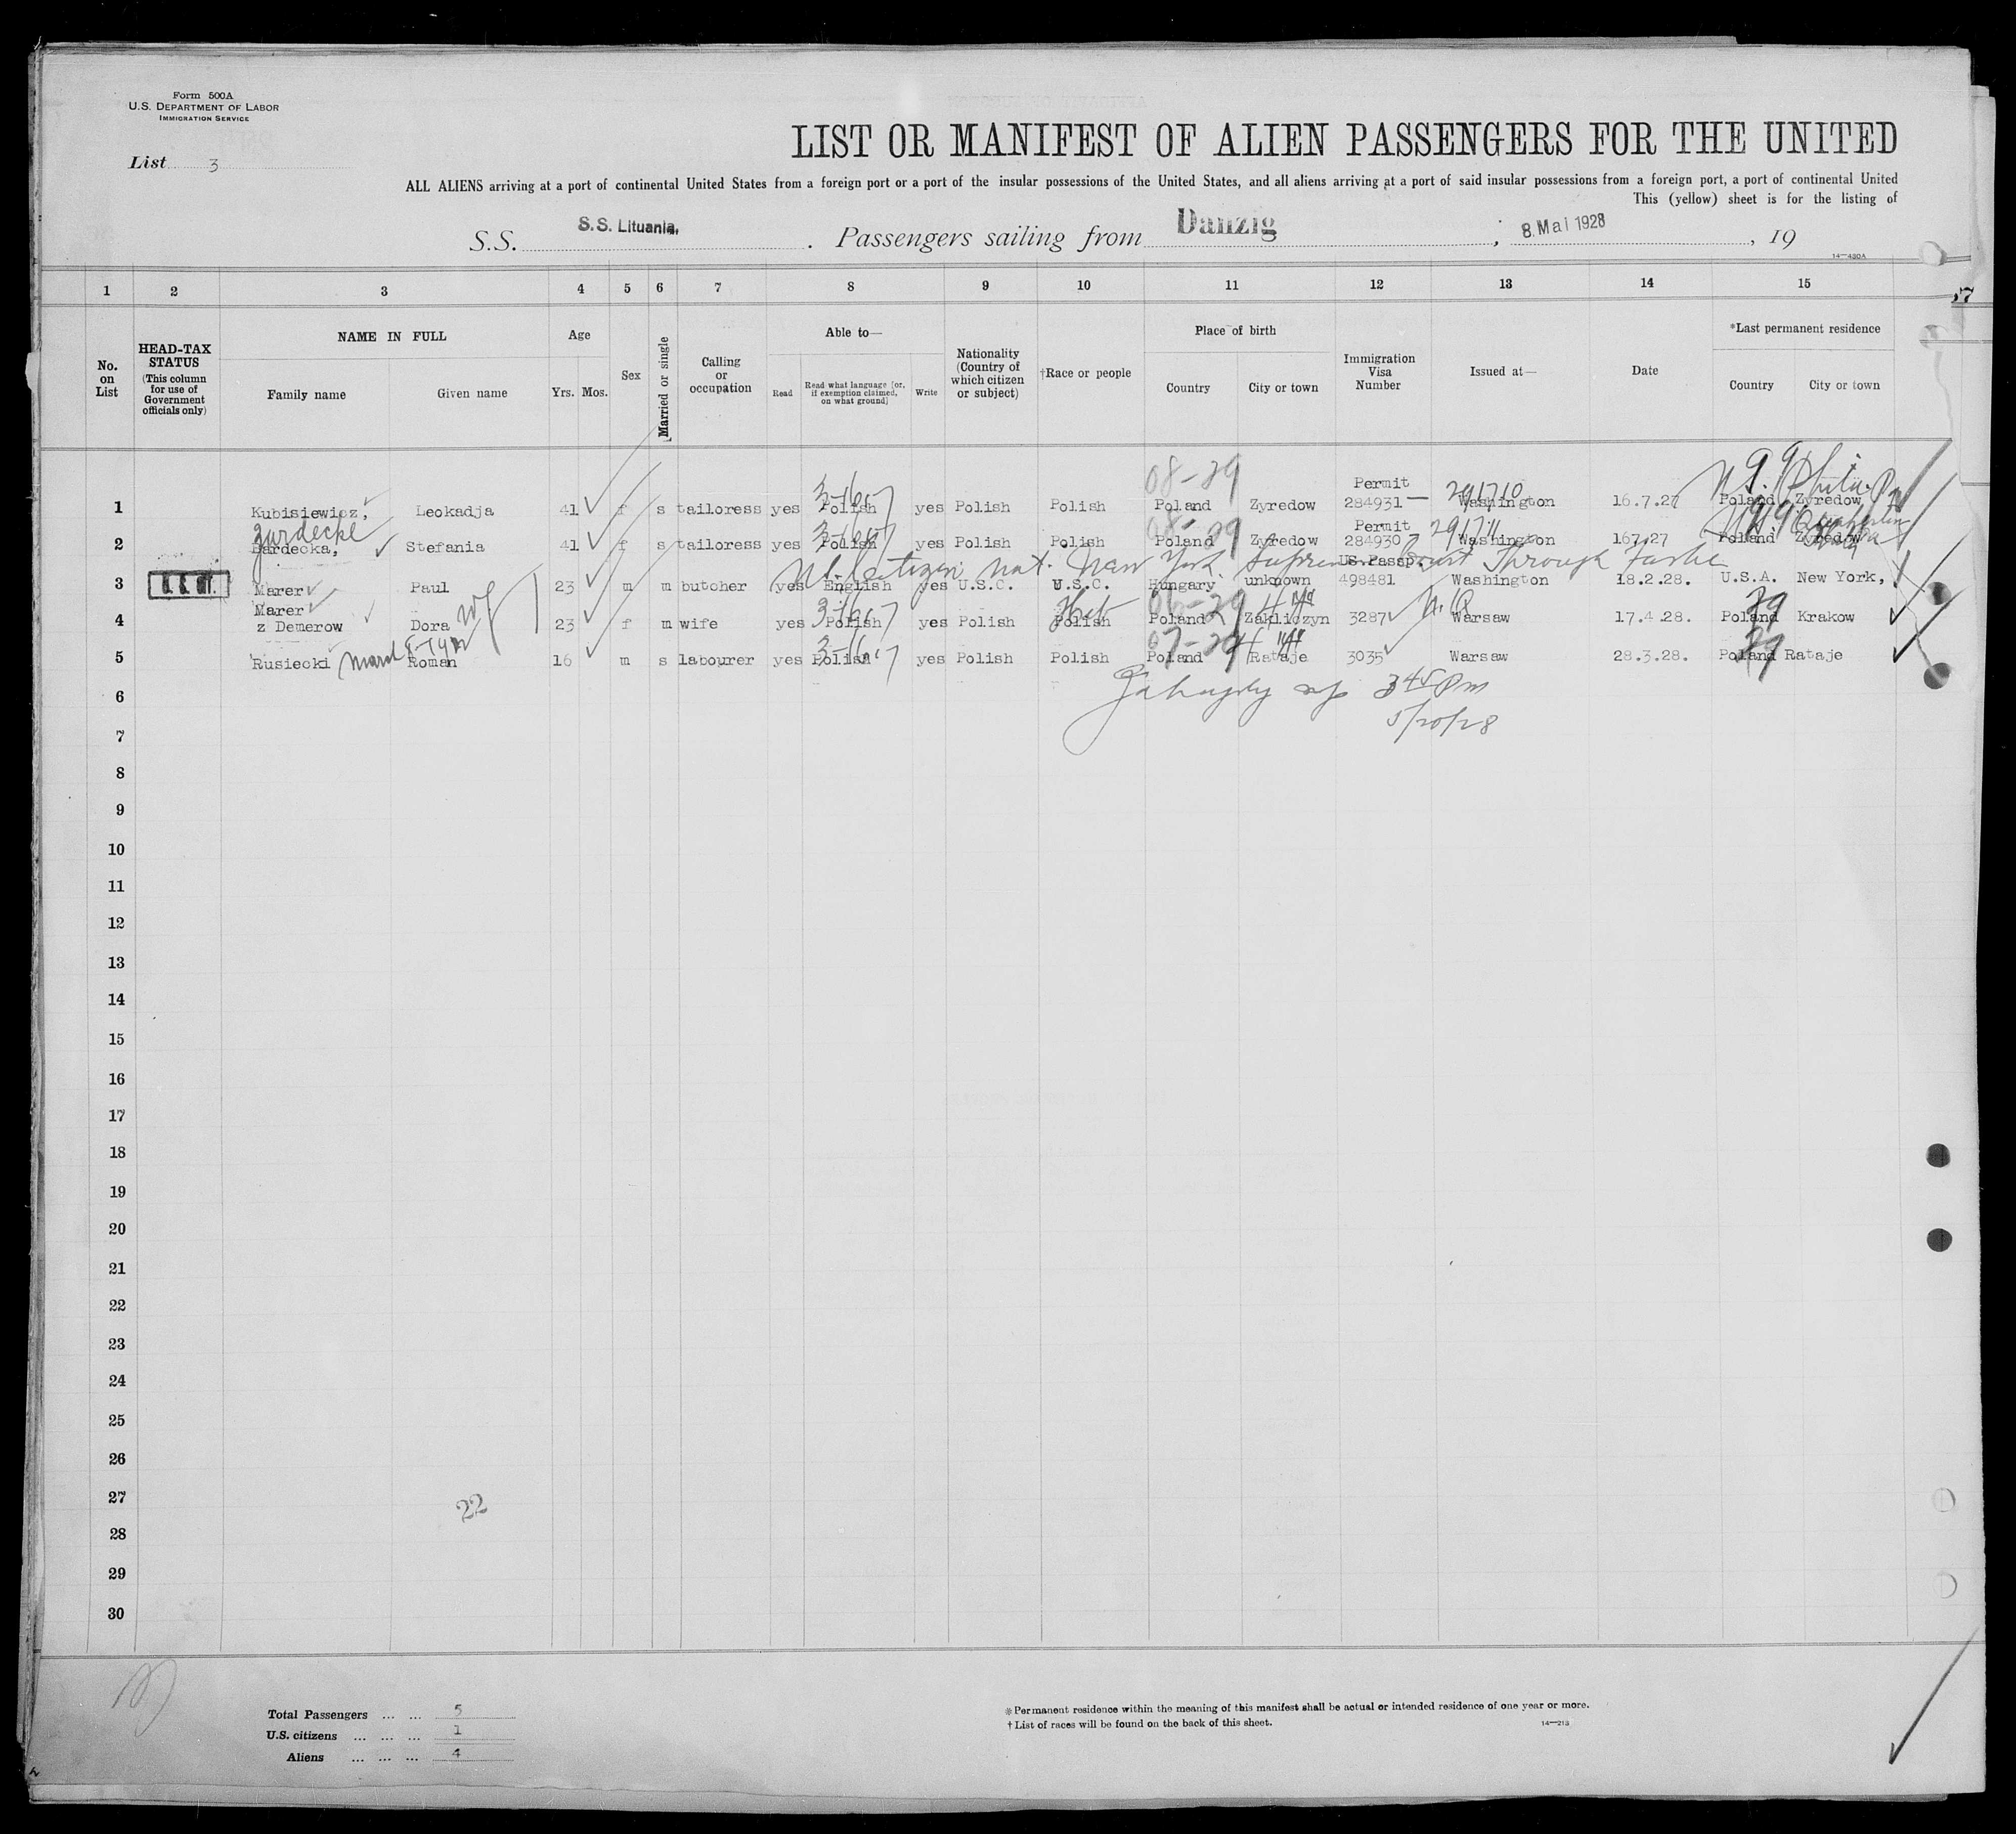 Form 500A
U.S. DEPARTMENT OF LABOR
IMMIGRATION SERVICE
List 3
LIST OR MANIFEST OF ALIEN PASSENGERS FOR THE UNITED
ALL ALIENS arriving at a port of continental United States from a foreign port or a port of the insular possessions of the United States, and all aliens arriving at a port of said insular possessions from a foreign port, a port of continental United
This (yellow) sheet is for the listing of
S.S. S.S. Lituania, . Passengers sailing from Danzig , 8. Mai 1928 , 19
14—430A
1 2 3 4 5 6 7 8 9 10 11 12 13 14 15
No. on List
HEAD-TAX STATUS (This column for use of Government officials only)
NAME IN FULL
Family name Given name
Age
Yrs. Mos.
Sex
Married or single
Calling or occupation
Able to—
Read Read what language [or, if exemption claimed, on what ground] Write
Nationality (Country of which citizen or subject)
†Race or people
Place of birth
Country City or town
Immigration Visa Number
Issued at—
Date
*Last permanent residence
Country City or town
08-29 Permit 291710 Phila. Pa
1 Kubisiewicz, Leokadja 41 f s tailoress yes Polish yes Polish Polish Poland Zyredow 284931 Washington 16.7.27 Poland Zyredow
Zardecke Permit 291711
2 Dardecka, Stefania 41 f s tailoress yes Polish yes Polish Polish Poland Zyredow 284930 Washington 167.27 Poland Zyredow
U.S. Citizen Nat. New York Supreme Court Through Father
US.Passp.
3 Marer Paul 23 m m butcher yes English yes U.S.C. U.S.C. Hungary unknown 498481 Washington 18.2.28. U.S.A. New York,
Marer Heb
4 z Demerow Dora 23 f m wife yes Polish yes Polish Polish Poland Zakliczyn 3287 Warsaw 17.4.28. Poland Krakow
5 Rusiecki Roman 16 m s labourer yes Polish yes Polish Polish Poland Rataje 3035 Warsaw 28.3.28. Poland Rataje
6 3 45 Pm
5/20/28
7
8
9
10
11
12
13
14
15
16
17
18
19
20
21
22
23
24
25
26
27
22
28
29
30
Total Passengers ... ... 5
U.S. citizens ... ... ... 1
Aliens ... ... ... 4
* Permanent residence within the meaning of this manifest shall be actual or intended residence of one year or more.
† List of races will be found on the back of this sheet.
14—213